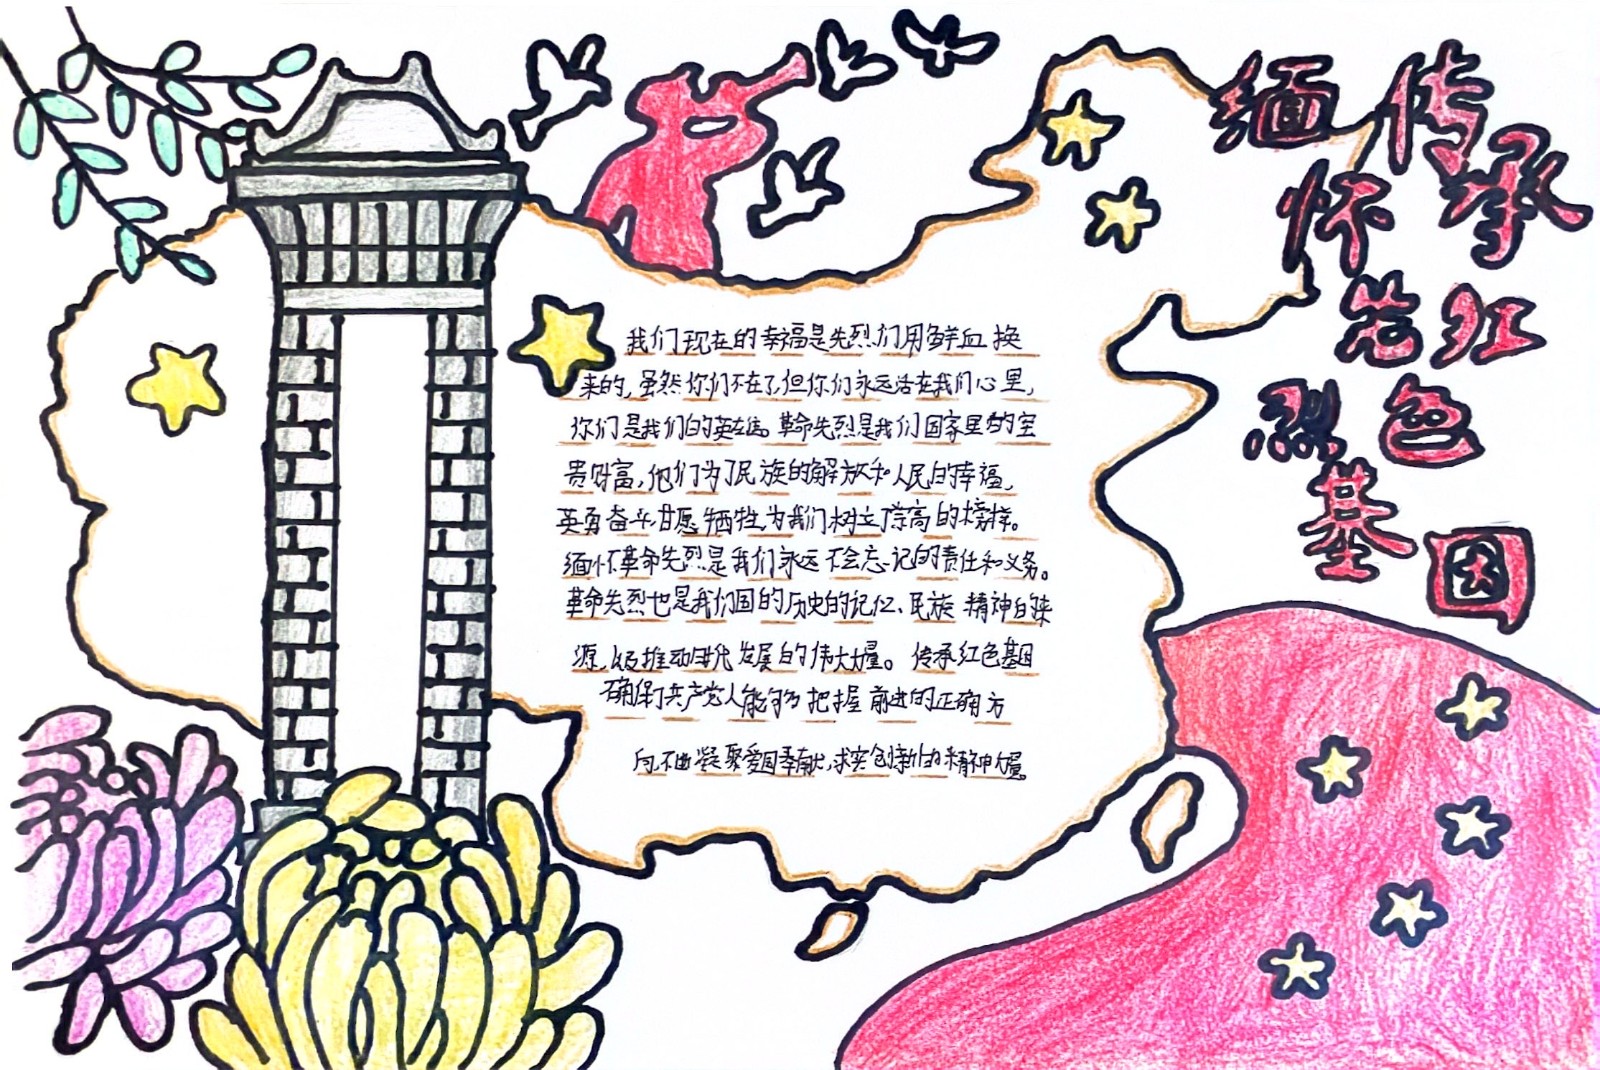 缅怀先烈
传承红色基因
我们现在的幸福是先烈们用鲜血换
来的,虽然你们不在了,但你们永远活在我们心里,
你们是我们的英雄。革命先烈是我们国家里的宝
贵财富,他们为了民族的解放和人民的幸福,
英勇奋斗,甘愿牺牲,为我们树立了崇高的榜样。
缅怀革命先烈是我们永远不会忘记的责任和义务。
革命先烈也是我们国的历史的记忆、民族精神的来
源,以及推动时代发展的伟大力量。传承红色基因
确保了共产党人能够为把握前进的正确方
向,不断凝聚爱国奉献,求实创新的精神力量。